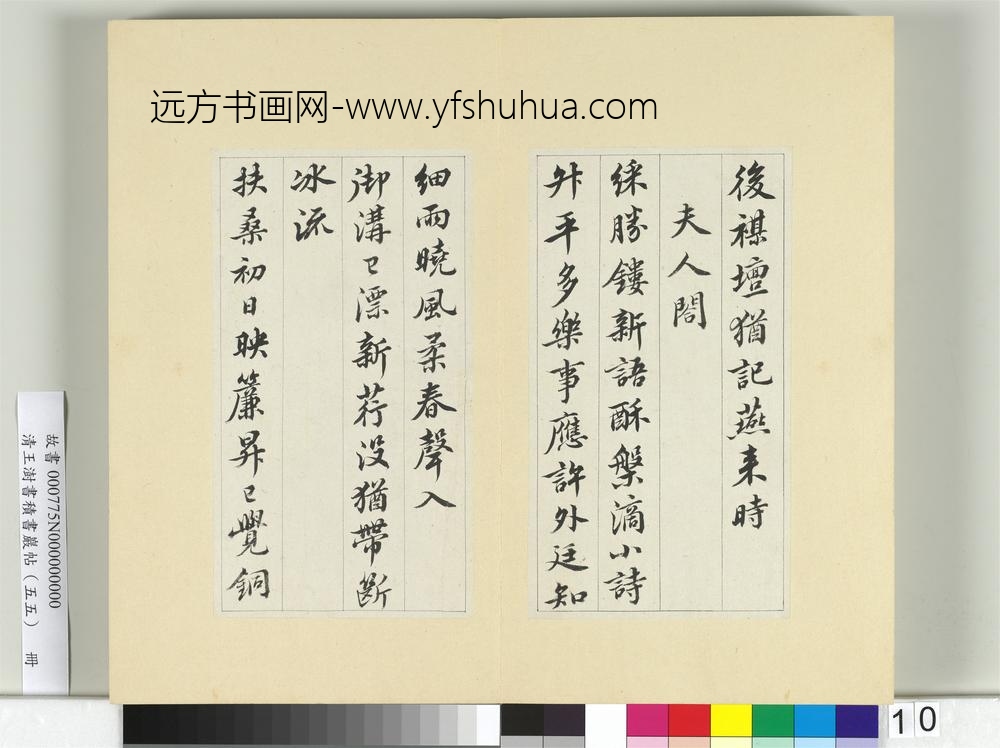 远方书画网-www.yfshuhua.com
後禖壇猶記燕来時
夫人閤
綵勝鏤新語酥槃滴小詩
升平多樂事應許外廷知
細雨曉風柔春聲入
御溝已漂新荇没猶帶断
冰流
扶桑初日映簾昇已覺銅
故書 000775N000000000
清王澍書積書巖帖（五五） 冊
10